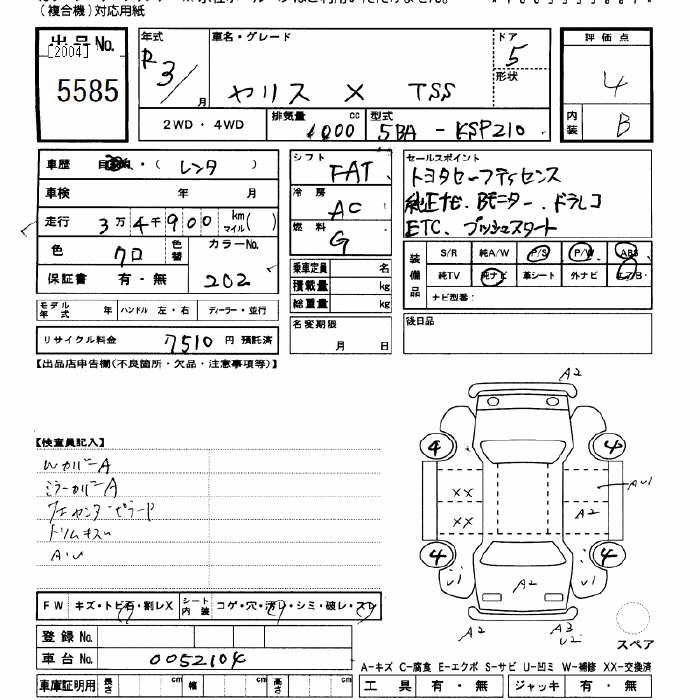 (複合機)対応用紙
出品No.
[2004]
5585
年式
R3/月
車名・グレード
ヤリス X TSS
ドア
5
形状
評価点
4
内装
B
2WD・4WD
排気量 cc
1000
型式
5BA - KSP210
車歴 ・( レンタ )
車検 年 月
走行 3万4千900 km マイル( )
色 クロ
色替
カラーNo.
202
保証書 有・無
モデル年式 年
ハンドル 左・右
ディーラー・並行
リサイクル料金 7510 円 預託済
シフト FAT
冷房 AC
燃料 G
乗車定員 名
積載量 kg
総重量 kg
名変期限
月 日
セールスポイント
トヨタセーフティセンス
純正ナビ、Bモニター、ドラレコ
ETC、プッシュスタート
装備品
S/R 純A/W P/S P/W ABS
純TV 純ナビ 革シート 外ナビ エアB
ナビ型番:
後日品
【出品店申告欄(不良箇所・欠品・注意事項等)】
【検査員記入】
Wカバー A
ミラーカバー A
トリムキズ
A・U
A2
4 4
XX
XX
AU1
A2
4 4
U1 U1
A2
A2 A3
U2
スペア
FW キズ・トビ石・割レX
シート内装 コゲ・穴・汚レ・シミ・破レ・スレ
登録No.
車台No. 0052104
車庫証明用 長さ cm 幅 cm 高さ cm
A-キズ C-腐食 E-エクボ S-サビ U-凹ミ W-補修 XX-交換済
工具 有・無 ジャッキ 有・無